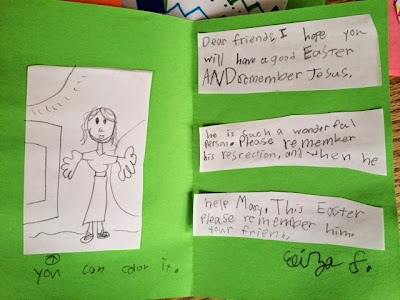 Dear friends, I hope you
will have a good Easter
AND remember Jesus.
he is such a wonderful
person. Please remember
his resrection, and when he
help Mary. This Easter
Please remember him.
your friend,
Eliza S.
you can color it.